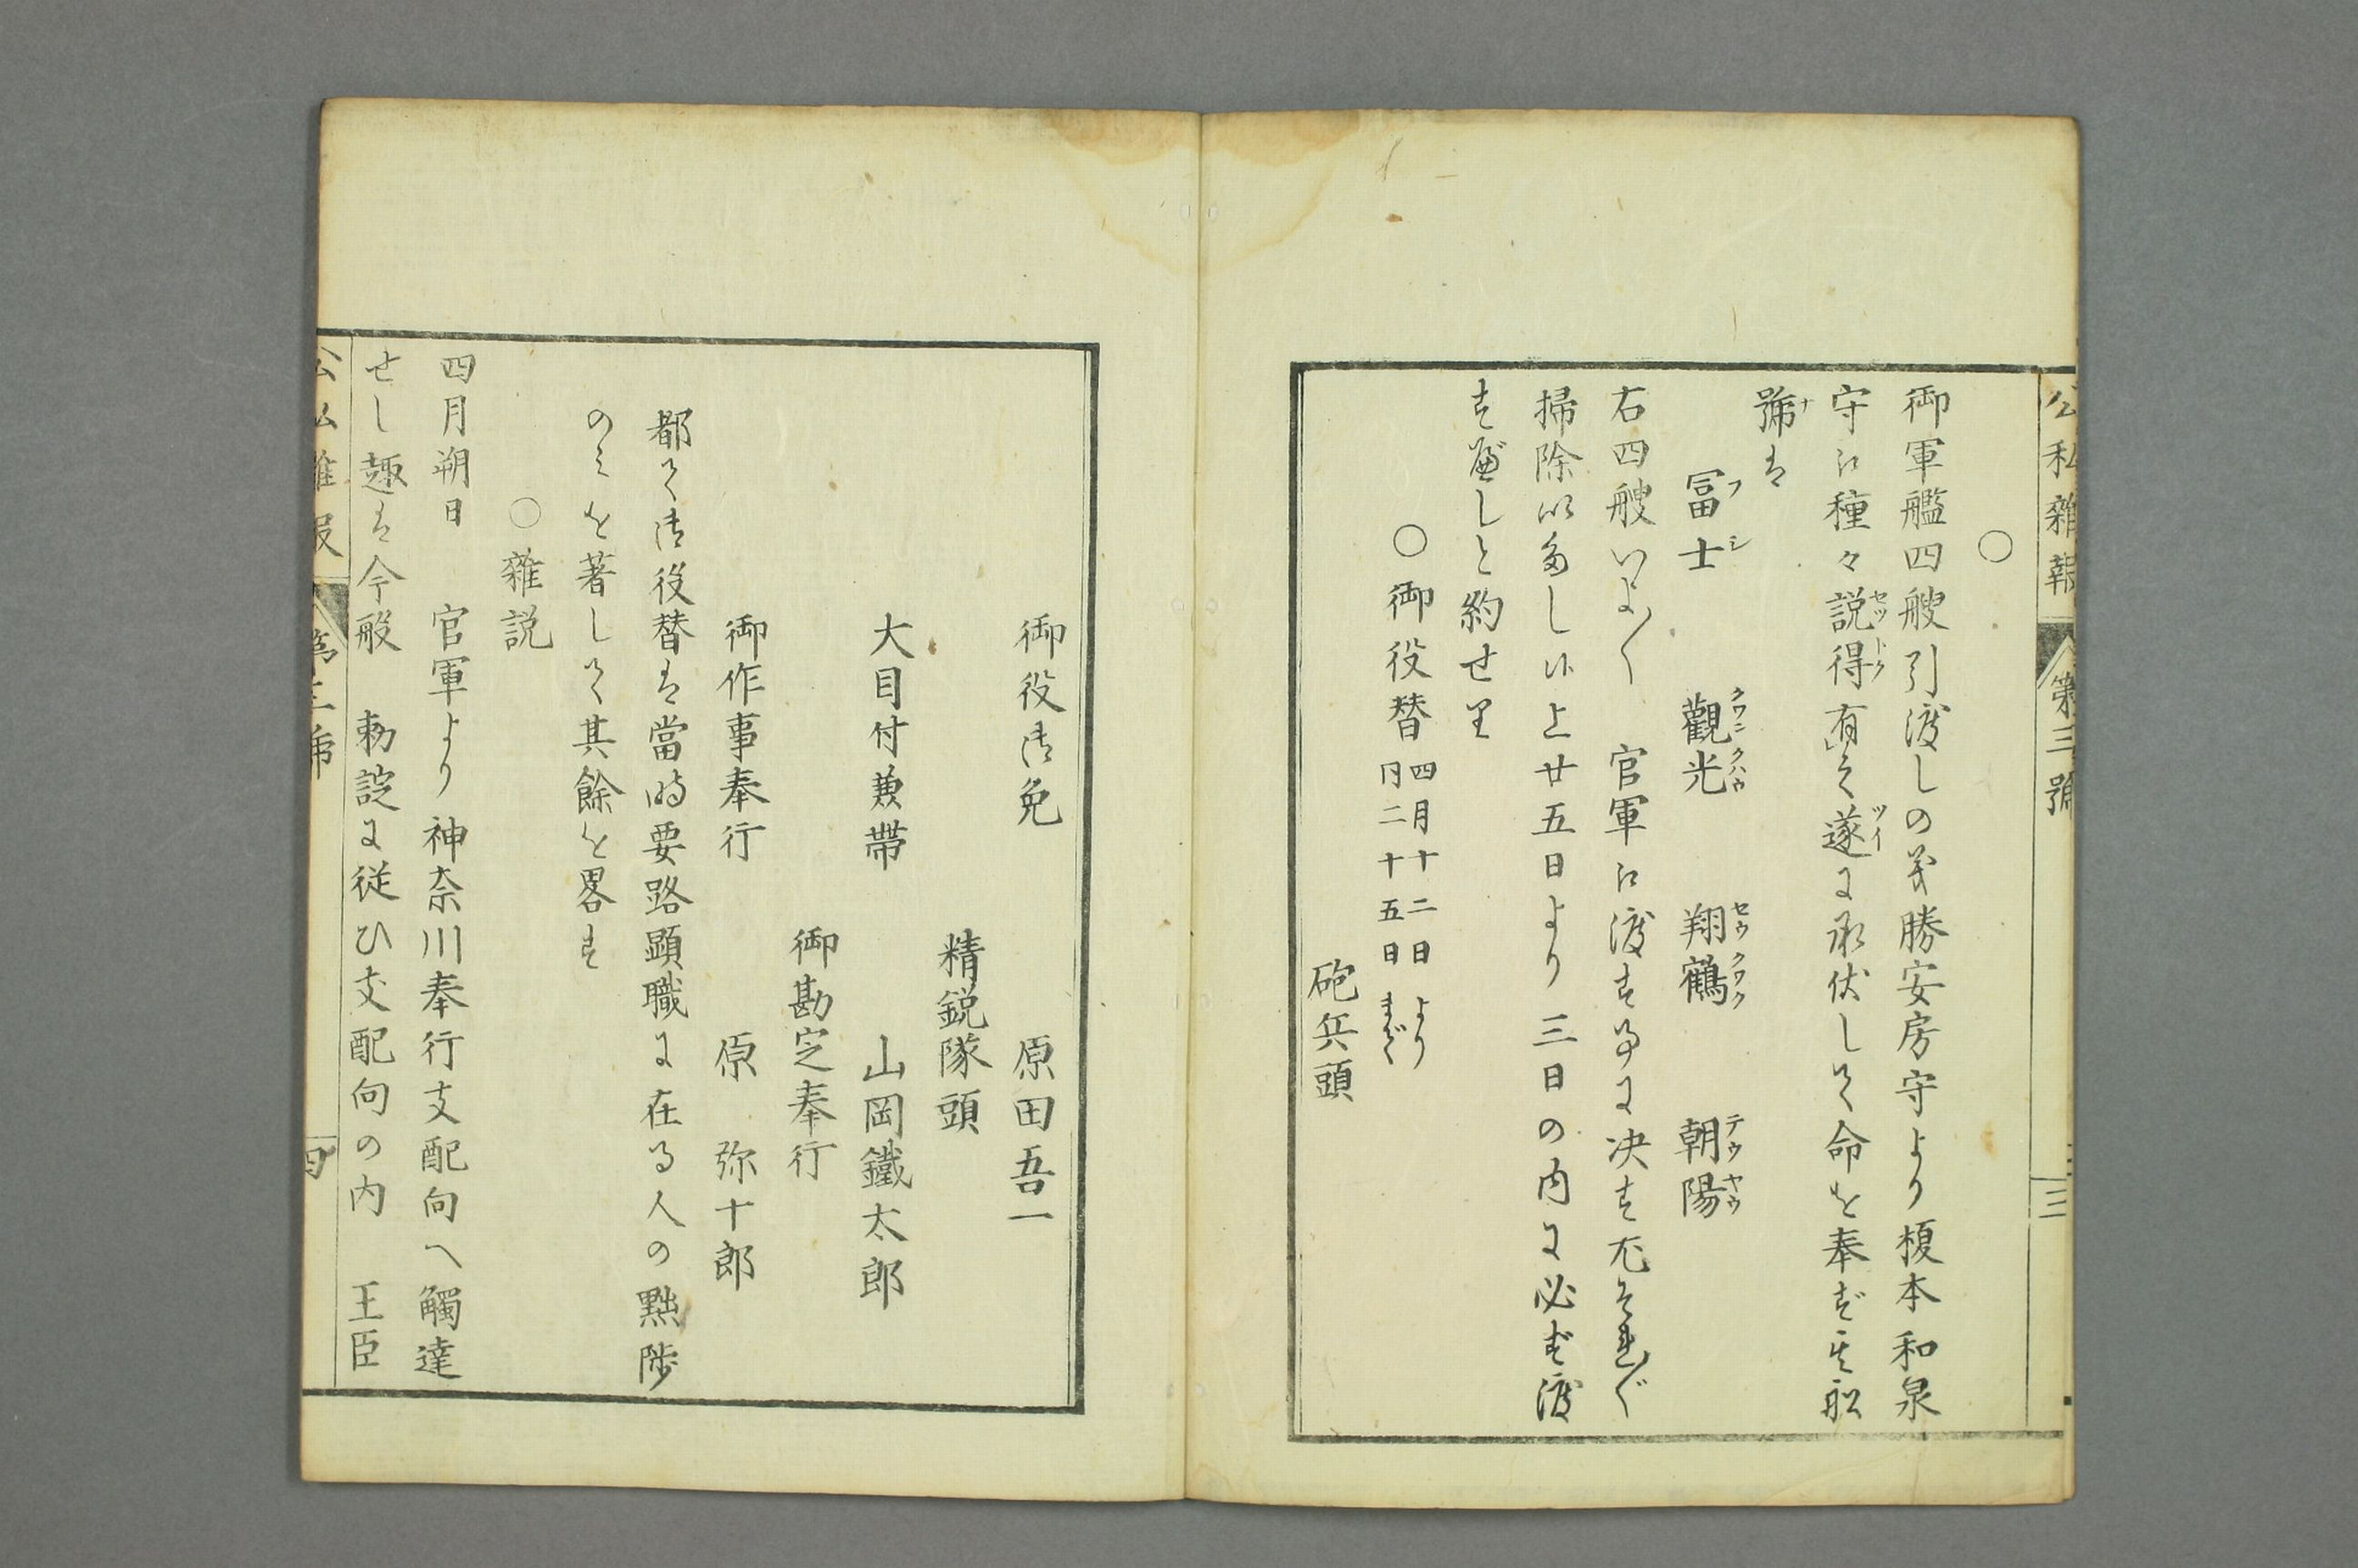 公私雜報
第三號
三
○
御軍艦四艘引渡しの義勝安房守より榎本和泉
守江種々説得有て遂に承伏して命を奉ず其船
號は
冨士 觀光 翔鶴 朝陽
フシ クワンクハウ セウクワク テウヤウ
右四艘いよ〱 官軍江渡す事に决す尤それ〲
掃除いたし候上廿五日より三日の内に必ず渡
すべしと約せり
○御役替 四月十二日より
同二十五日まで
砲兵頭
御役御免 原田吾一
精鋭隊頭
大目付兼帶 山岡鐵太郎
御勘定奉行
御作事奉行 原 弥十郎
都て御役替は當時要路顕職に在る人の黜陟
のミを著して其餘を畧す
○雜説
四月朔日 官軍より神奈川奉行支配向へ觸達
せし趣は今般 勅諚に従ひ支配向の内 王臣
公私雜報
第三號
四